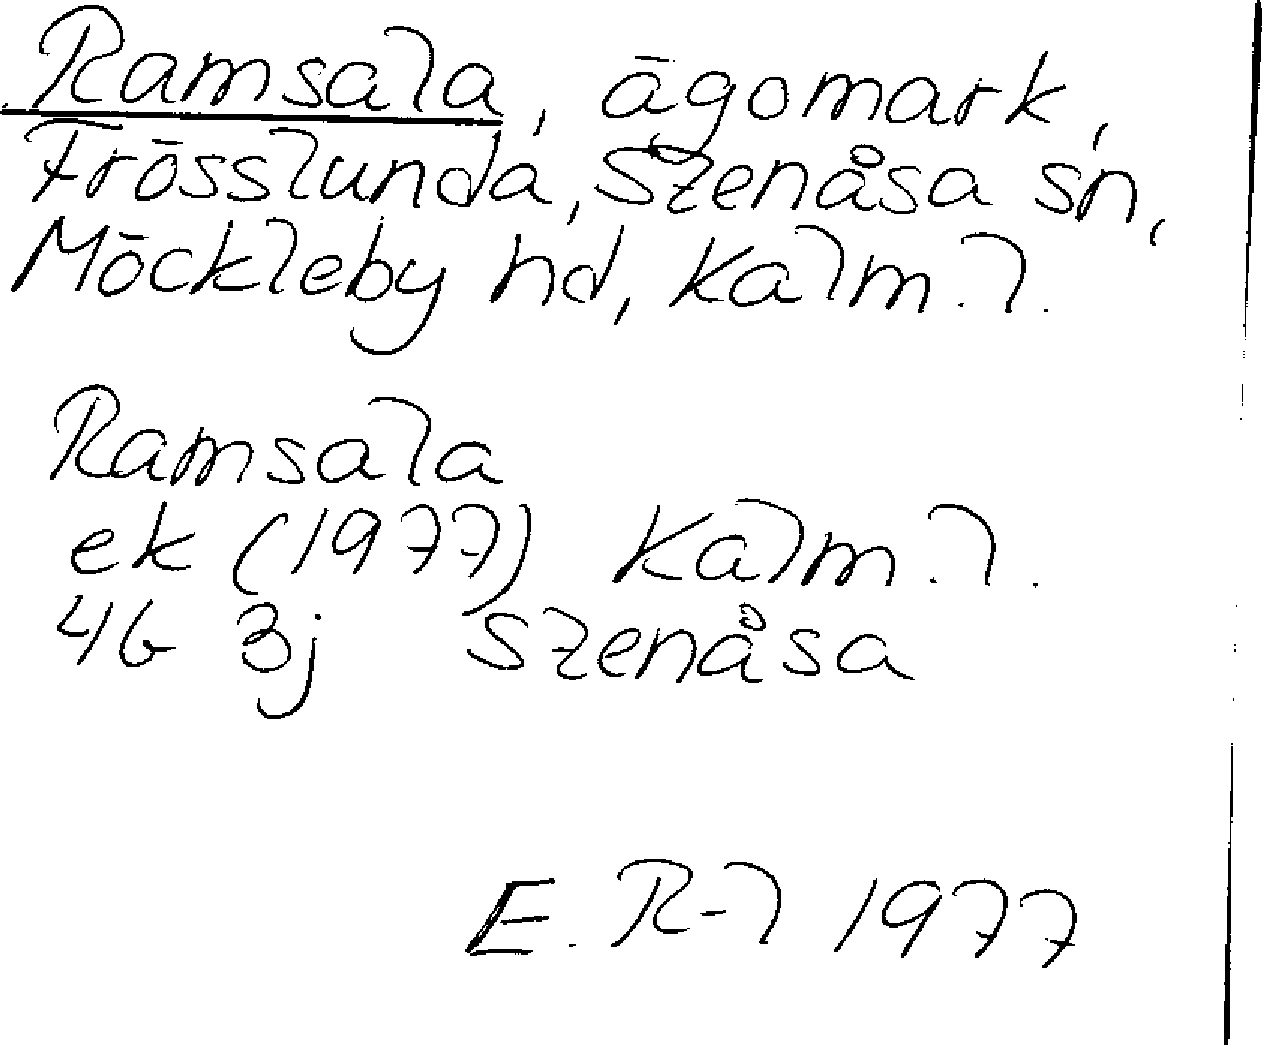 Ramsala, ägomark,
Frösslunda, Stenåsa sn,
Möckleby hd, Kalm. l.
Ramsala
ek (1977) Kalm. l.
4G 3j Stenåsa
E. R-l 1977